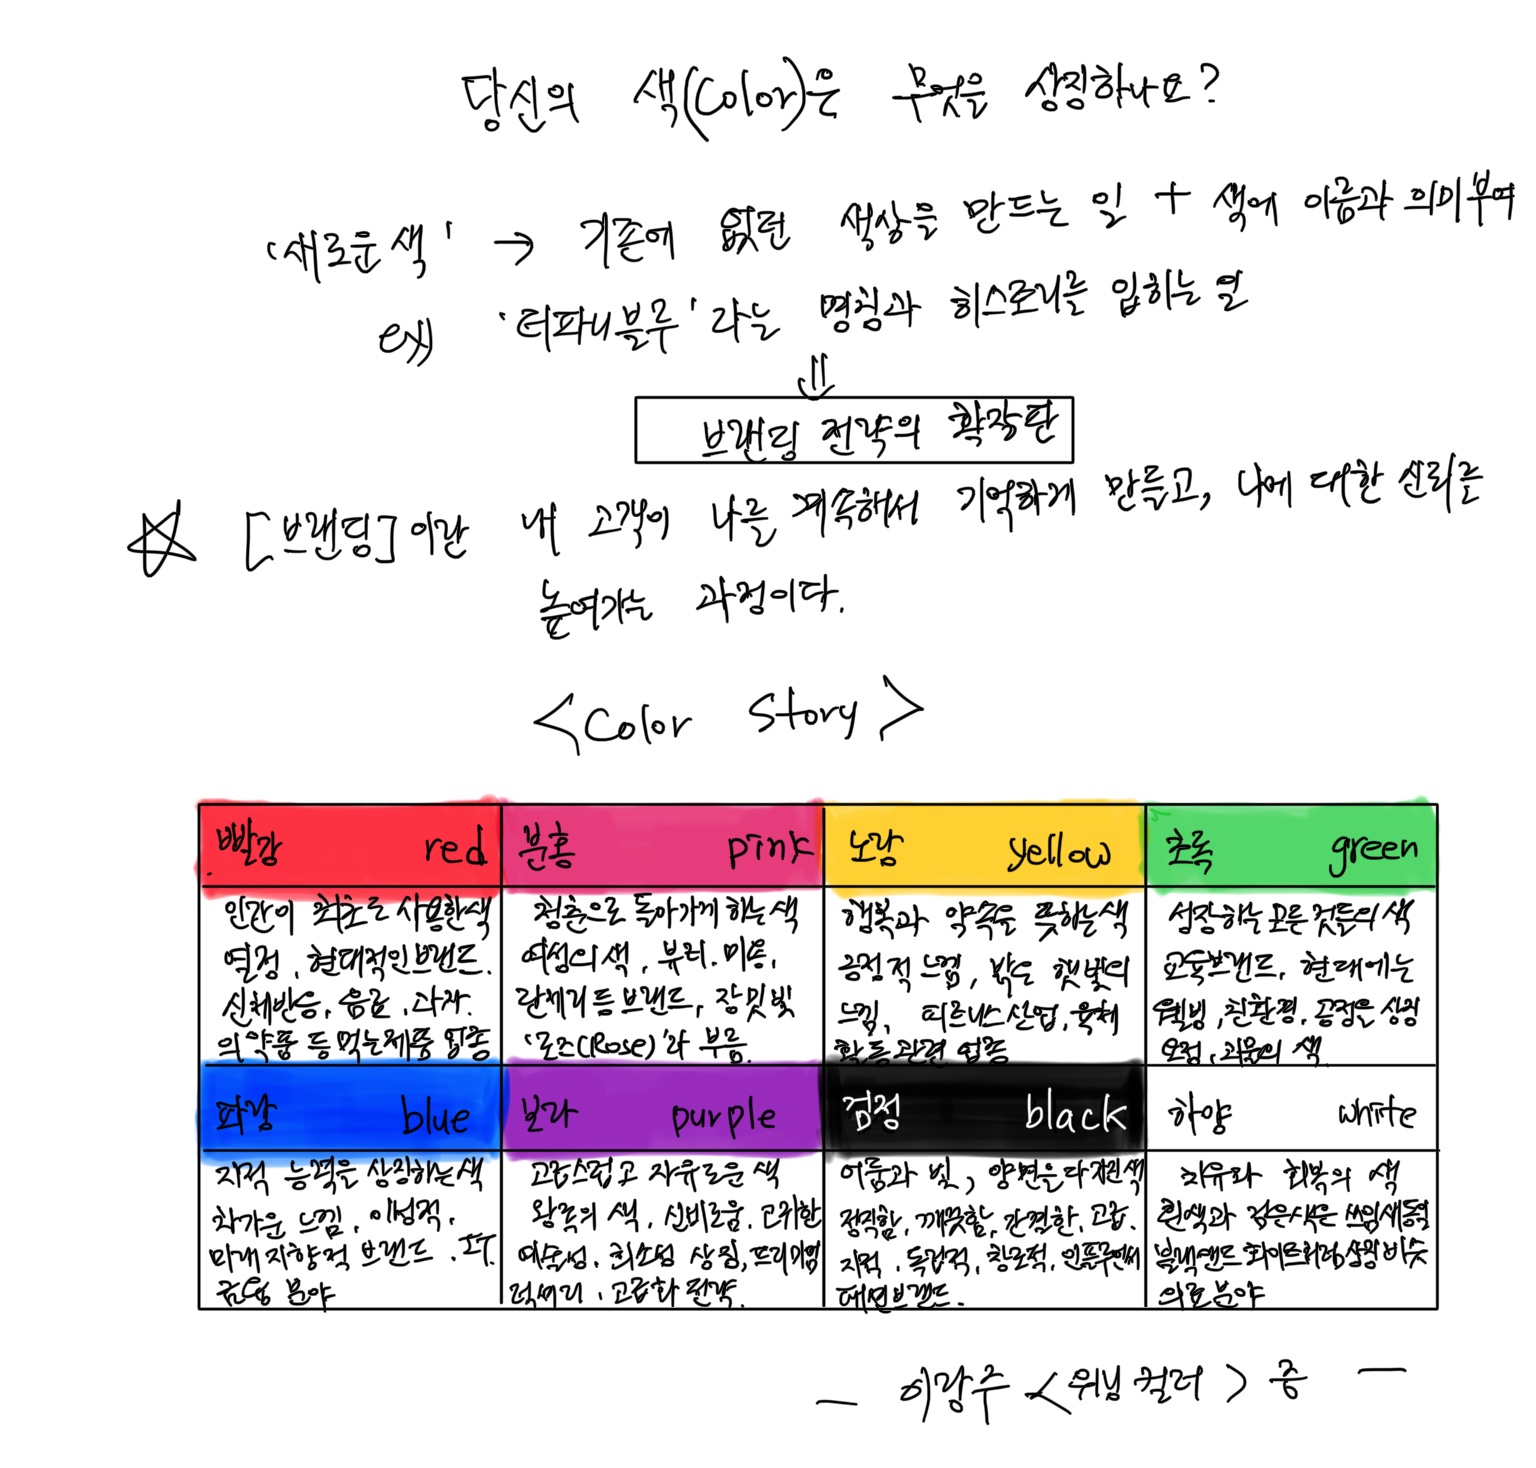 당신의 색(Color)은 무엇을 상징하나요?
'새로운 색' → 기존에 없던 색상을 만드는 일 + 색에 이름과 의미부여
ex) '티파니블루'라는 명칭과 히스토리를 입히는 일
⇓
브랜딩 전략의 확장판
☆ [브랜딩]이란 내 고객이 나를 계속해서 기억하게 만들고, 나에 대한 신뢰를
높여가는 과정이다.
<Color Story>
빨강 red
인간이 최초로 사용한 색
열정, 현대적인 브랜드.
신체반응, 음료, 과자.
의약품 등 먹는제품 업종
분홍 pink
청춘으로 돌아가게 하는 색
여성의 색, 뷰티. 미용,
란제리 등 브랜드, 장밋빛
'로즈(Rose)'라 부름.
노랑 yellow
행복과 약속을 뜻하는 색
긍정적 느낌, 밝은 햇빛의
느낌, 피트니스 산업, 육체
활동 관련 업종
초록 green
성장하는 모든 것들의 색
교육브랜드, 현대에는
웰빙, 친환경, 긍정을 상징
우정, 의 색.
파랑 blue
지적 능력을 상징하는 색
차가운 느낌, 이성적,
미래지향적 브랜드. IT.
금융 분야
보라 purple
고급스럽고 자유로운 색
왕족의 색, 신비로움, 고귀한
예술성, 희소성 상징, 프리미엄
럭셔리, 고급화 전략.
검정 black
어둠과 빛, 양면을 다 가진 색
정직함, 깨끗함, 간결한, 고급.
지적, 독립적, 창조적, 인플루언서
패션브랜드.
하양 white
치유와 회복의 색
흰색과 검은색은 쓰임새 등
블랙앤드화이트처럼 상황 비슷
의료 분야
— 이랑주 <위닝컬러> 중 —